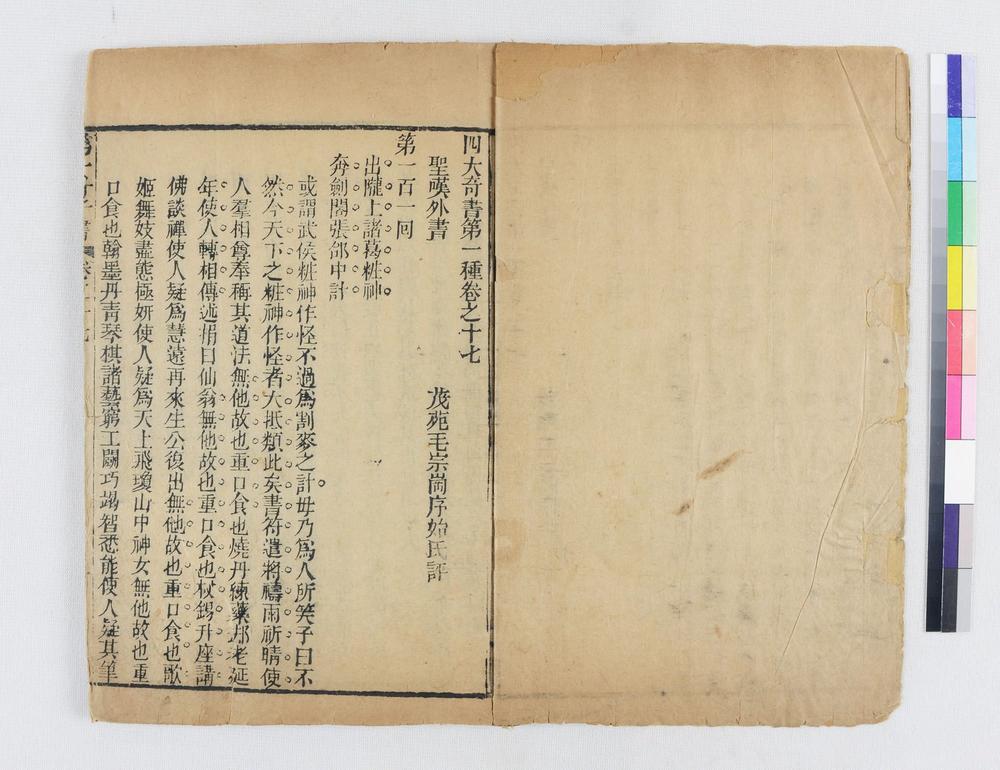 四大奇書第一種卷之十七
聖嘆外書
茂苑毛宗崗序始氏評
第一百一回
出隴上諸葛粧神
奔劍閣張郃中計
或謂武侯粧神作怪不過為割麥之計毋乃為人所笑予曰不
然今天下之粧神作怪者大抵類此矣書符遣將禱雨祈晴使
人羣相尊奉稱其道法無他故也重口食也燒丹練藥邦老延
年使人轉相傳述指曰仙翁無他故也重口食也杖錫升座講
佛談禪使人疑為慧遠再來生公復出無他故也重口食也歌
姬舞妓盡態極妍使人疑為天上飛瓊山中神女無他故也重
口食也翰墨丹靑琴棋諸藝窮工鬬巧竭智悉能使人疑其筆